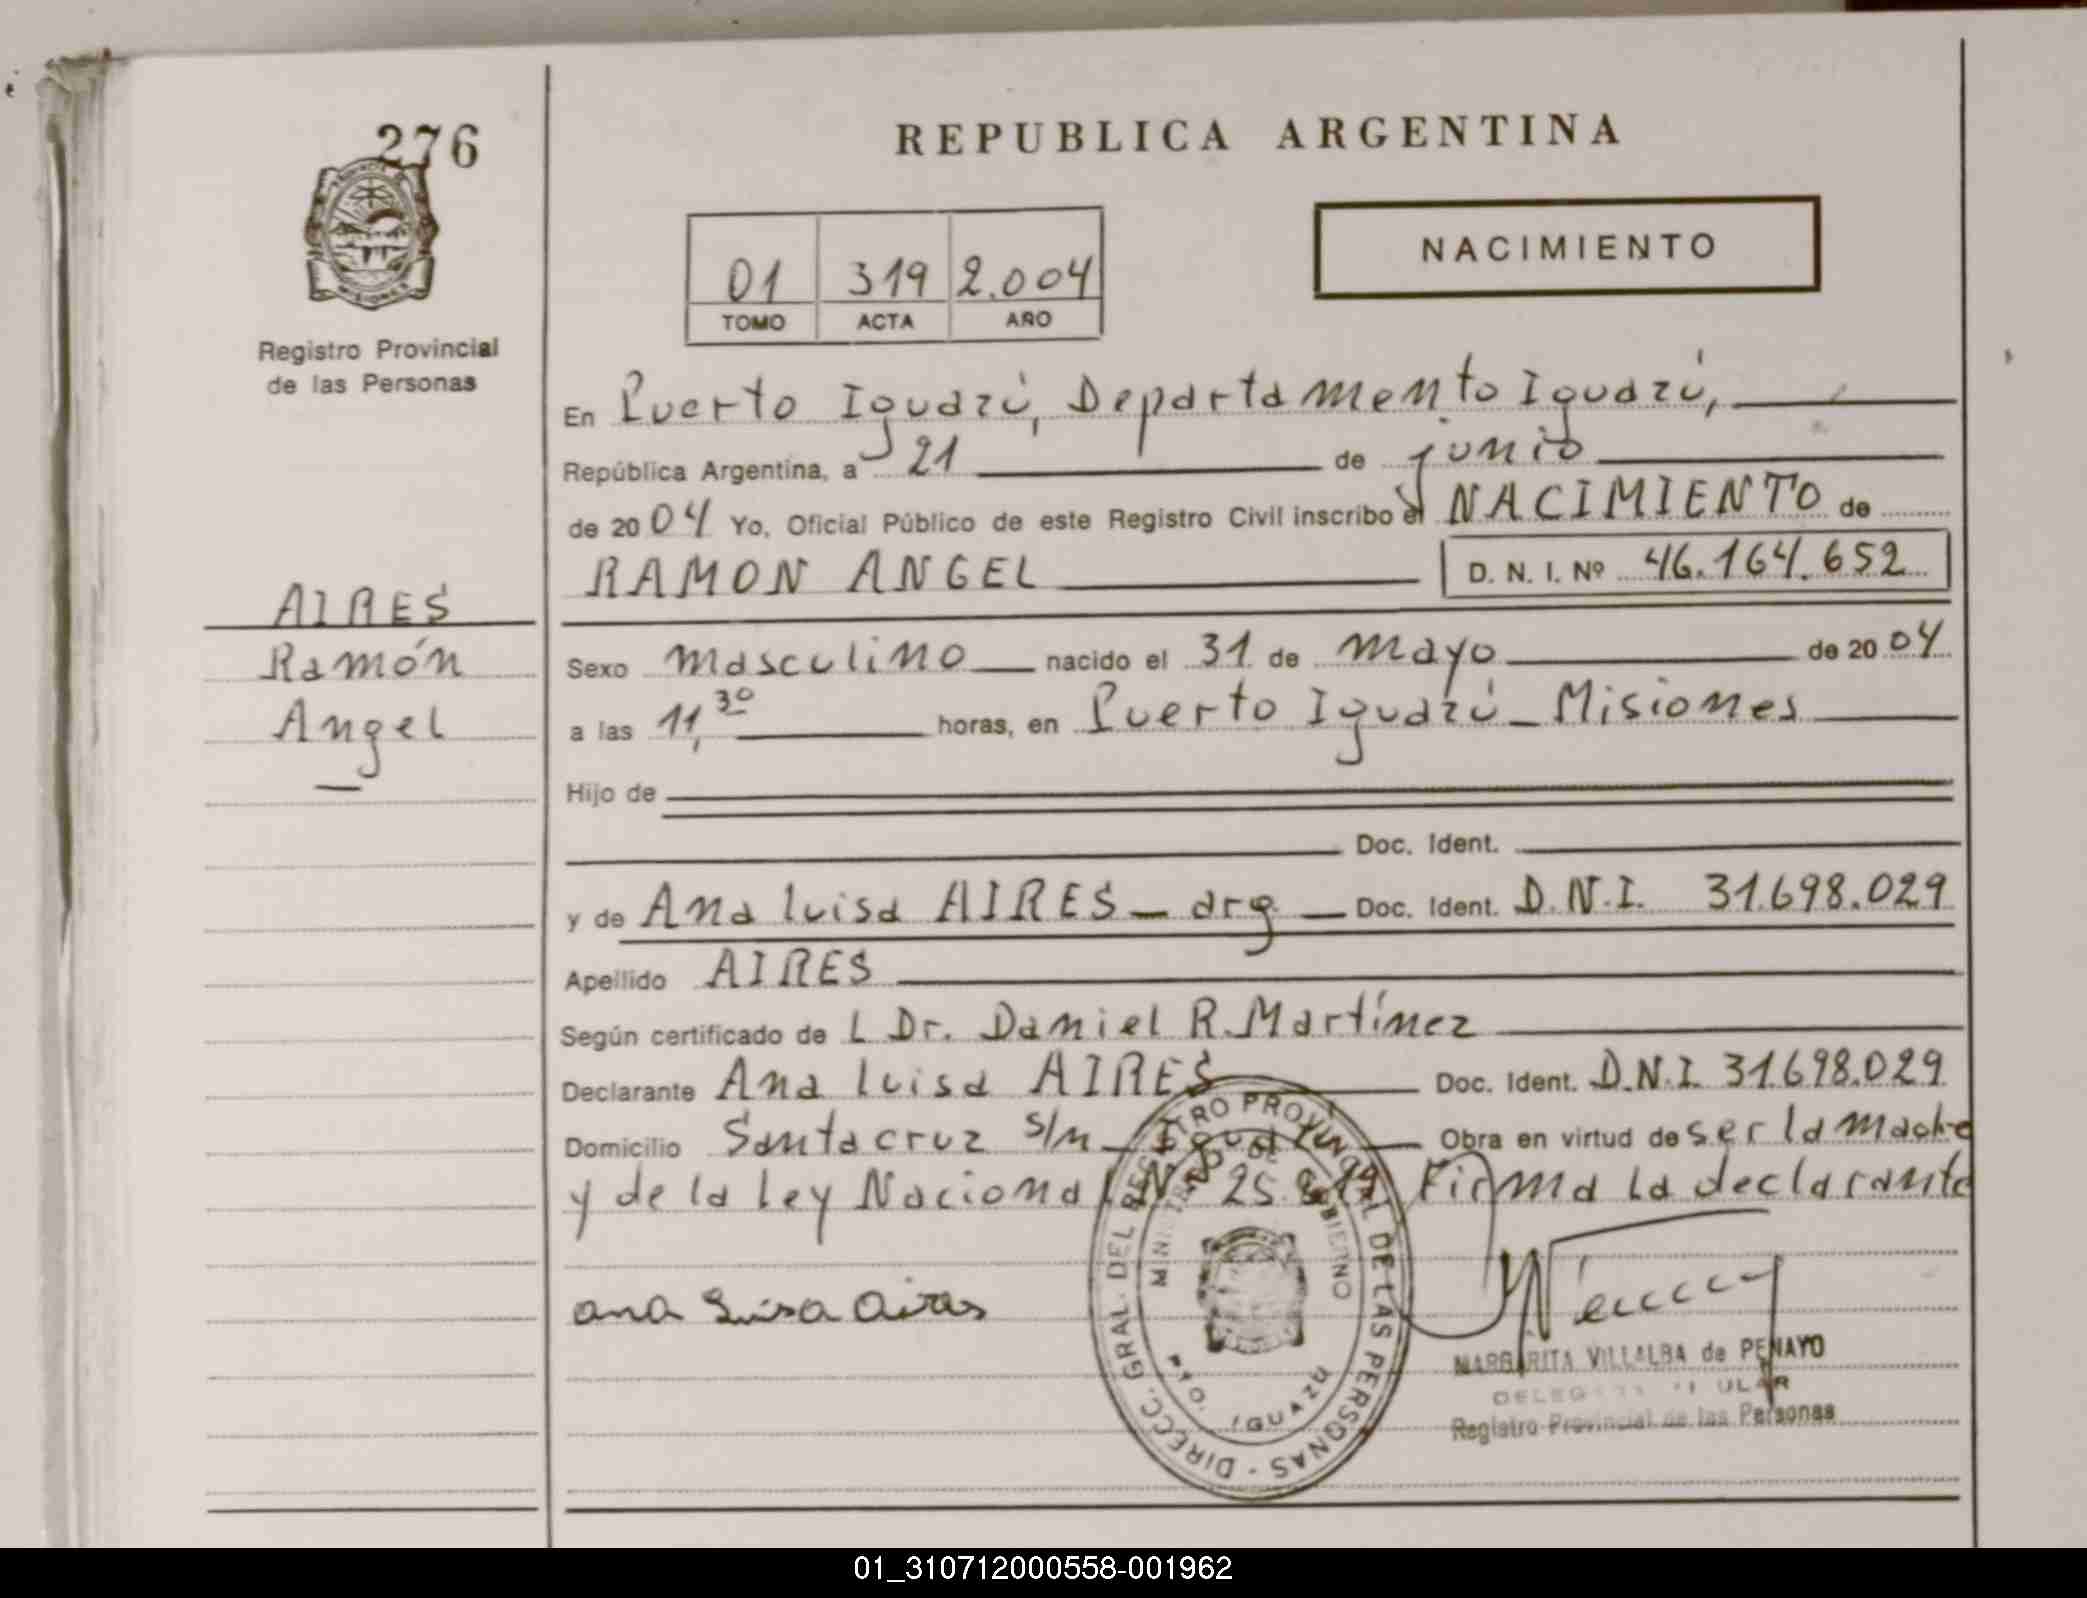 276
REPUBLICA ARGENTINA
NACIMIENTO
01 319 2.004
TOMO ACTA AÑO
Registro Provincial
de las Personas
En Puerto Iguazú, Departamento Iguazú,
República Argentina, a 21 de junio
de 2004 Yo, Oficial Público de este Registro Civil inscribo el NACIMIENTO de
RAMON ANGEL D. N. I. Nº 46.164.652
AIRES
Ramón
Angel
Sexo masculino nacido el 31 de mayo de 2004
a las 11,30 horas, en Puerto Iguazú - Misiones
Hijo de
Doc. Ident.
y de Ana Luisa AIRES - arg Doc. Ident. D.N.I. 31.698.029
Apellido AIRES
Según certificado de L Dr. Daniel R. Martínez
Declarante Ana Luisa AIRES Doc. Ident. D.N.I. 31.698.029
Domicilio Santa cruz s/n - Iguazú Obra en virtud de ser la madre
y de la Ley Nacional Nº 25. Firma la declarante
ana Luisa Aires
DIRECC. GRAL. DEL REGISTRO PROVINCIAL DE LAS PERSONAS -
MINISTERIO DE GOBIERNO
PTO. IGUAZU
MARGARITA VILLALBA de PENAYO
Registro Provincial de las Personas
01_310712000558-001962